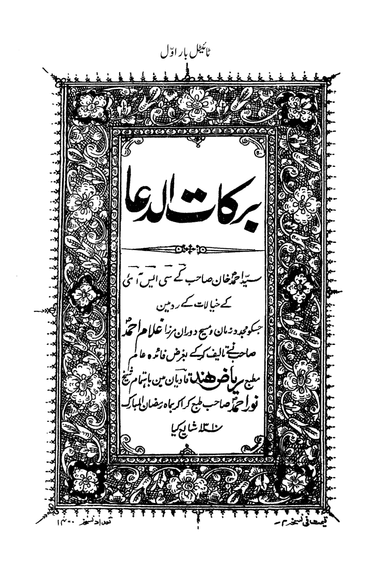 ٹائیٹل بار اوّل
برکات الدعا
سیّد احمد خان صاحب کے سی ایس آئی
کے خیالات کے رد مین
جسکو مجدد زمان و مسیح دوران مرزا غلام احمد
صاحب نے تالیف کرکے بغرض فائدہ عام
مطبع ریاض ہند قادیان مین باہتمام شیخ
نور احمد صاحب طبع کراکر بماہ رمضان المبارک
۱۳۱۰ شایع کیا
تعداد نسخہ ۱۴۰۰
قیمت فی نسخہ ۲